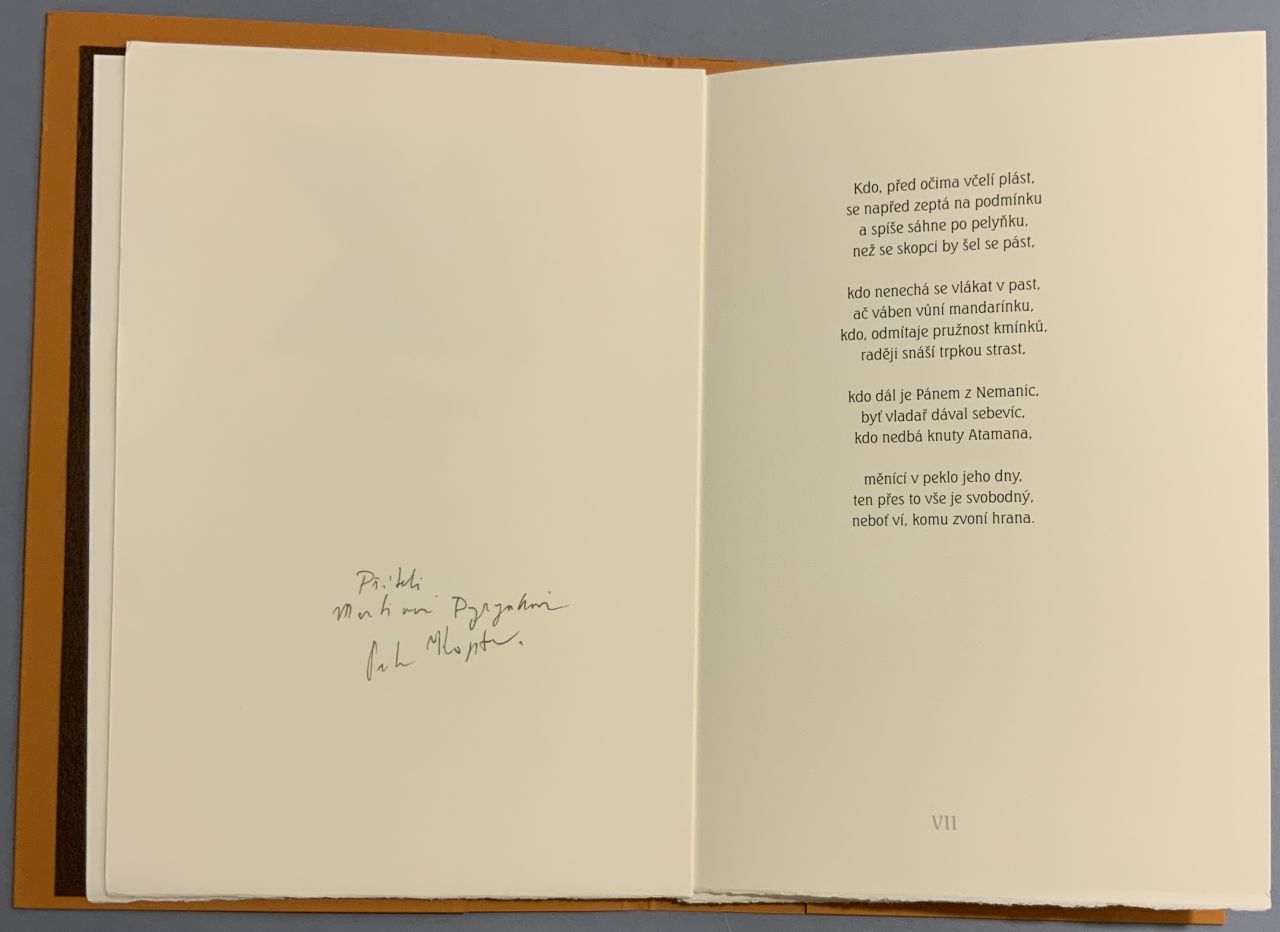 Příteli
Martinovi
Petr Kopta.
Kdo, před očima včelí plást,
se napřed zeptá na podmínku
a spíše sáhne po pelyňku,
než se skopci by šel se pást,
kdo nenechá se vlákat v past,
ač váben vůní mandarínku,
kdo, odmítaje pružnost kmínků,
raději snáší trpkou strast,
kdo dál je Pánem z Nemanic,
byť vladař dával sebevíc,
kdo nedbá knuty Atamana,
měnící v peklo jeho dny,
ten přes to vše je svobodný,
neboť ví, komu zvoní hrana.
VII